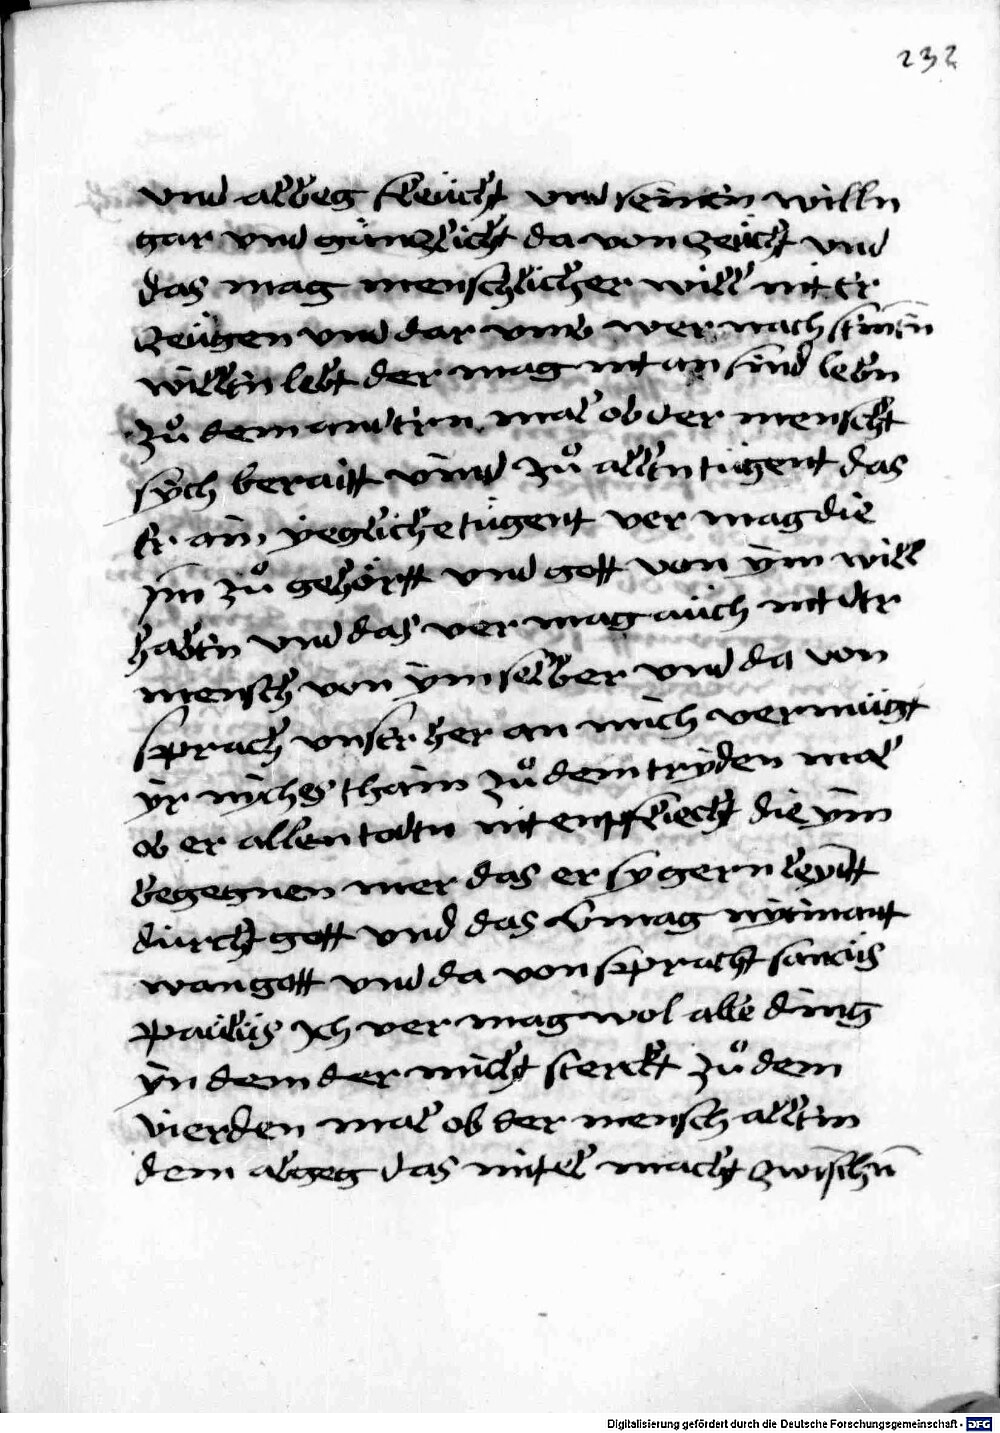 232
vnd albeg fleücht vnd seinen willn
gar vnd gänczlicht da von zeücht vnd
das mag menschlicher will nit er
zeügen vnd dar vmb wer nach seinen
willen lebt der mag nit an sünd lebn
zů dem andern mal ob der menscht
sych beraitt vmd zů allen tügent das
er ain yegliche tügent ver mag die
ym zů gehörtt vnd gott von ym will
haben vnd das ver mag aüch nit der
mensch von ym selber vnd da von
sprach vnser her an mich vermügt
yr nychs thain zů dem tryden mal
ob er allen todtn nit enpfliecht die ym
begegnen mer das er sy gern leyitt
dürch gott vnd das mag nyemant
wan gott vnd da von spracht sanctüs
paülüs ych ver mag wol alle ding
yn dem der micht sterckt zů dem
vierden mal ob der mensch allen
dem abgeg das mitel macht zwischn
Digitalisierung gefördert durch die Deutsche Forschungsgemeinschaft - DFG